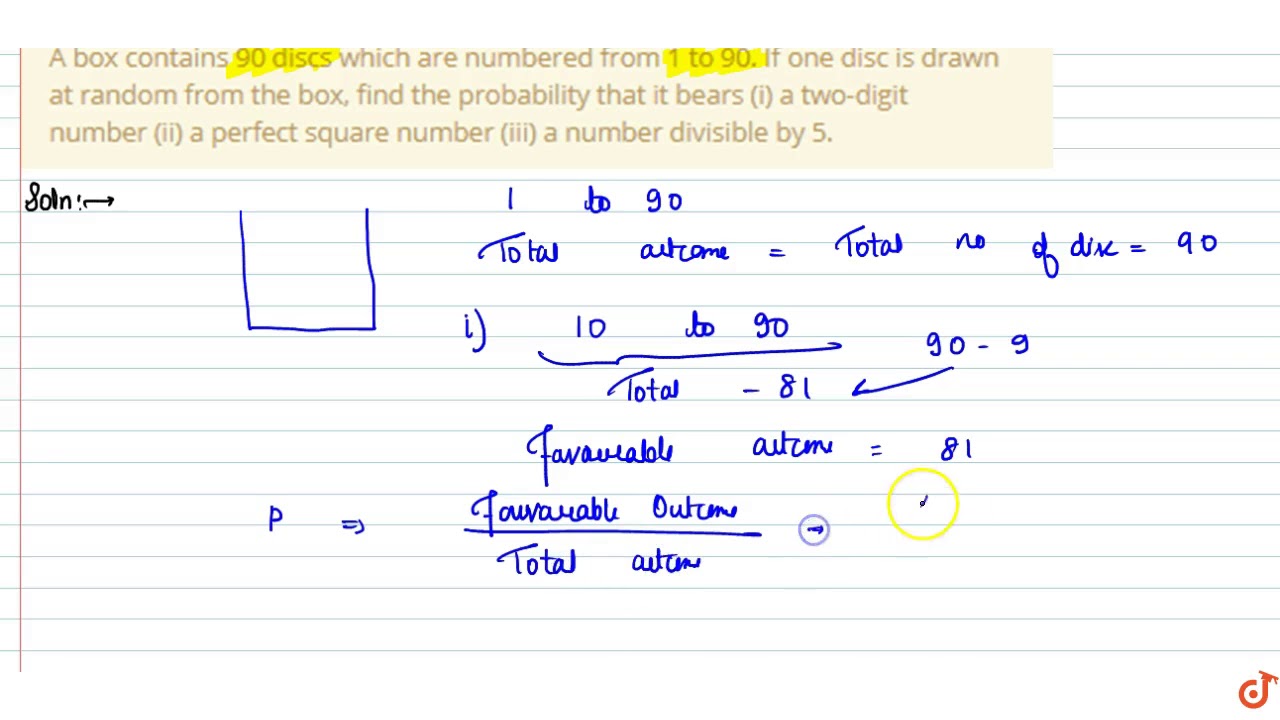 A box contains 90 discs which are numbered from 1 to 90. If one disc is drawn
at random from the box, find the probability that it bears (i) a two-digit
number (ii) a perfect square number (iii) a number divisible by 5.
Soln:→
1 to 90
Total outcome = Total no of disc = 90
i) 10 to 90
90 - 9
Total - 81
Favourable outcome = 81
P ⇒ Favourable Outcome
Total outcome
⇒